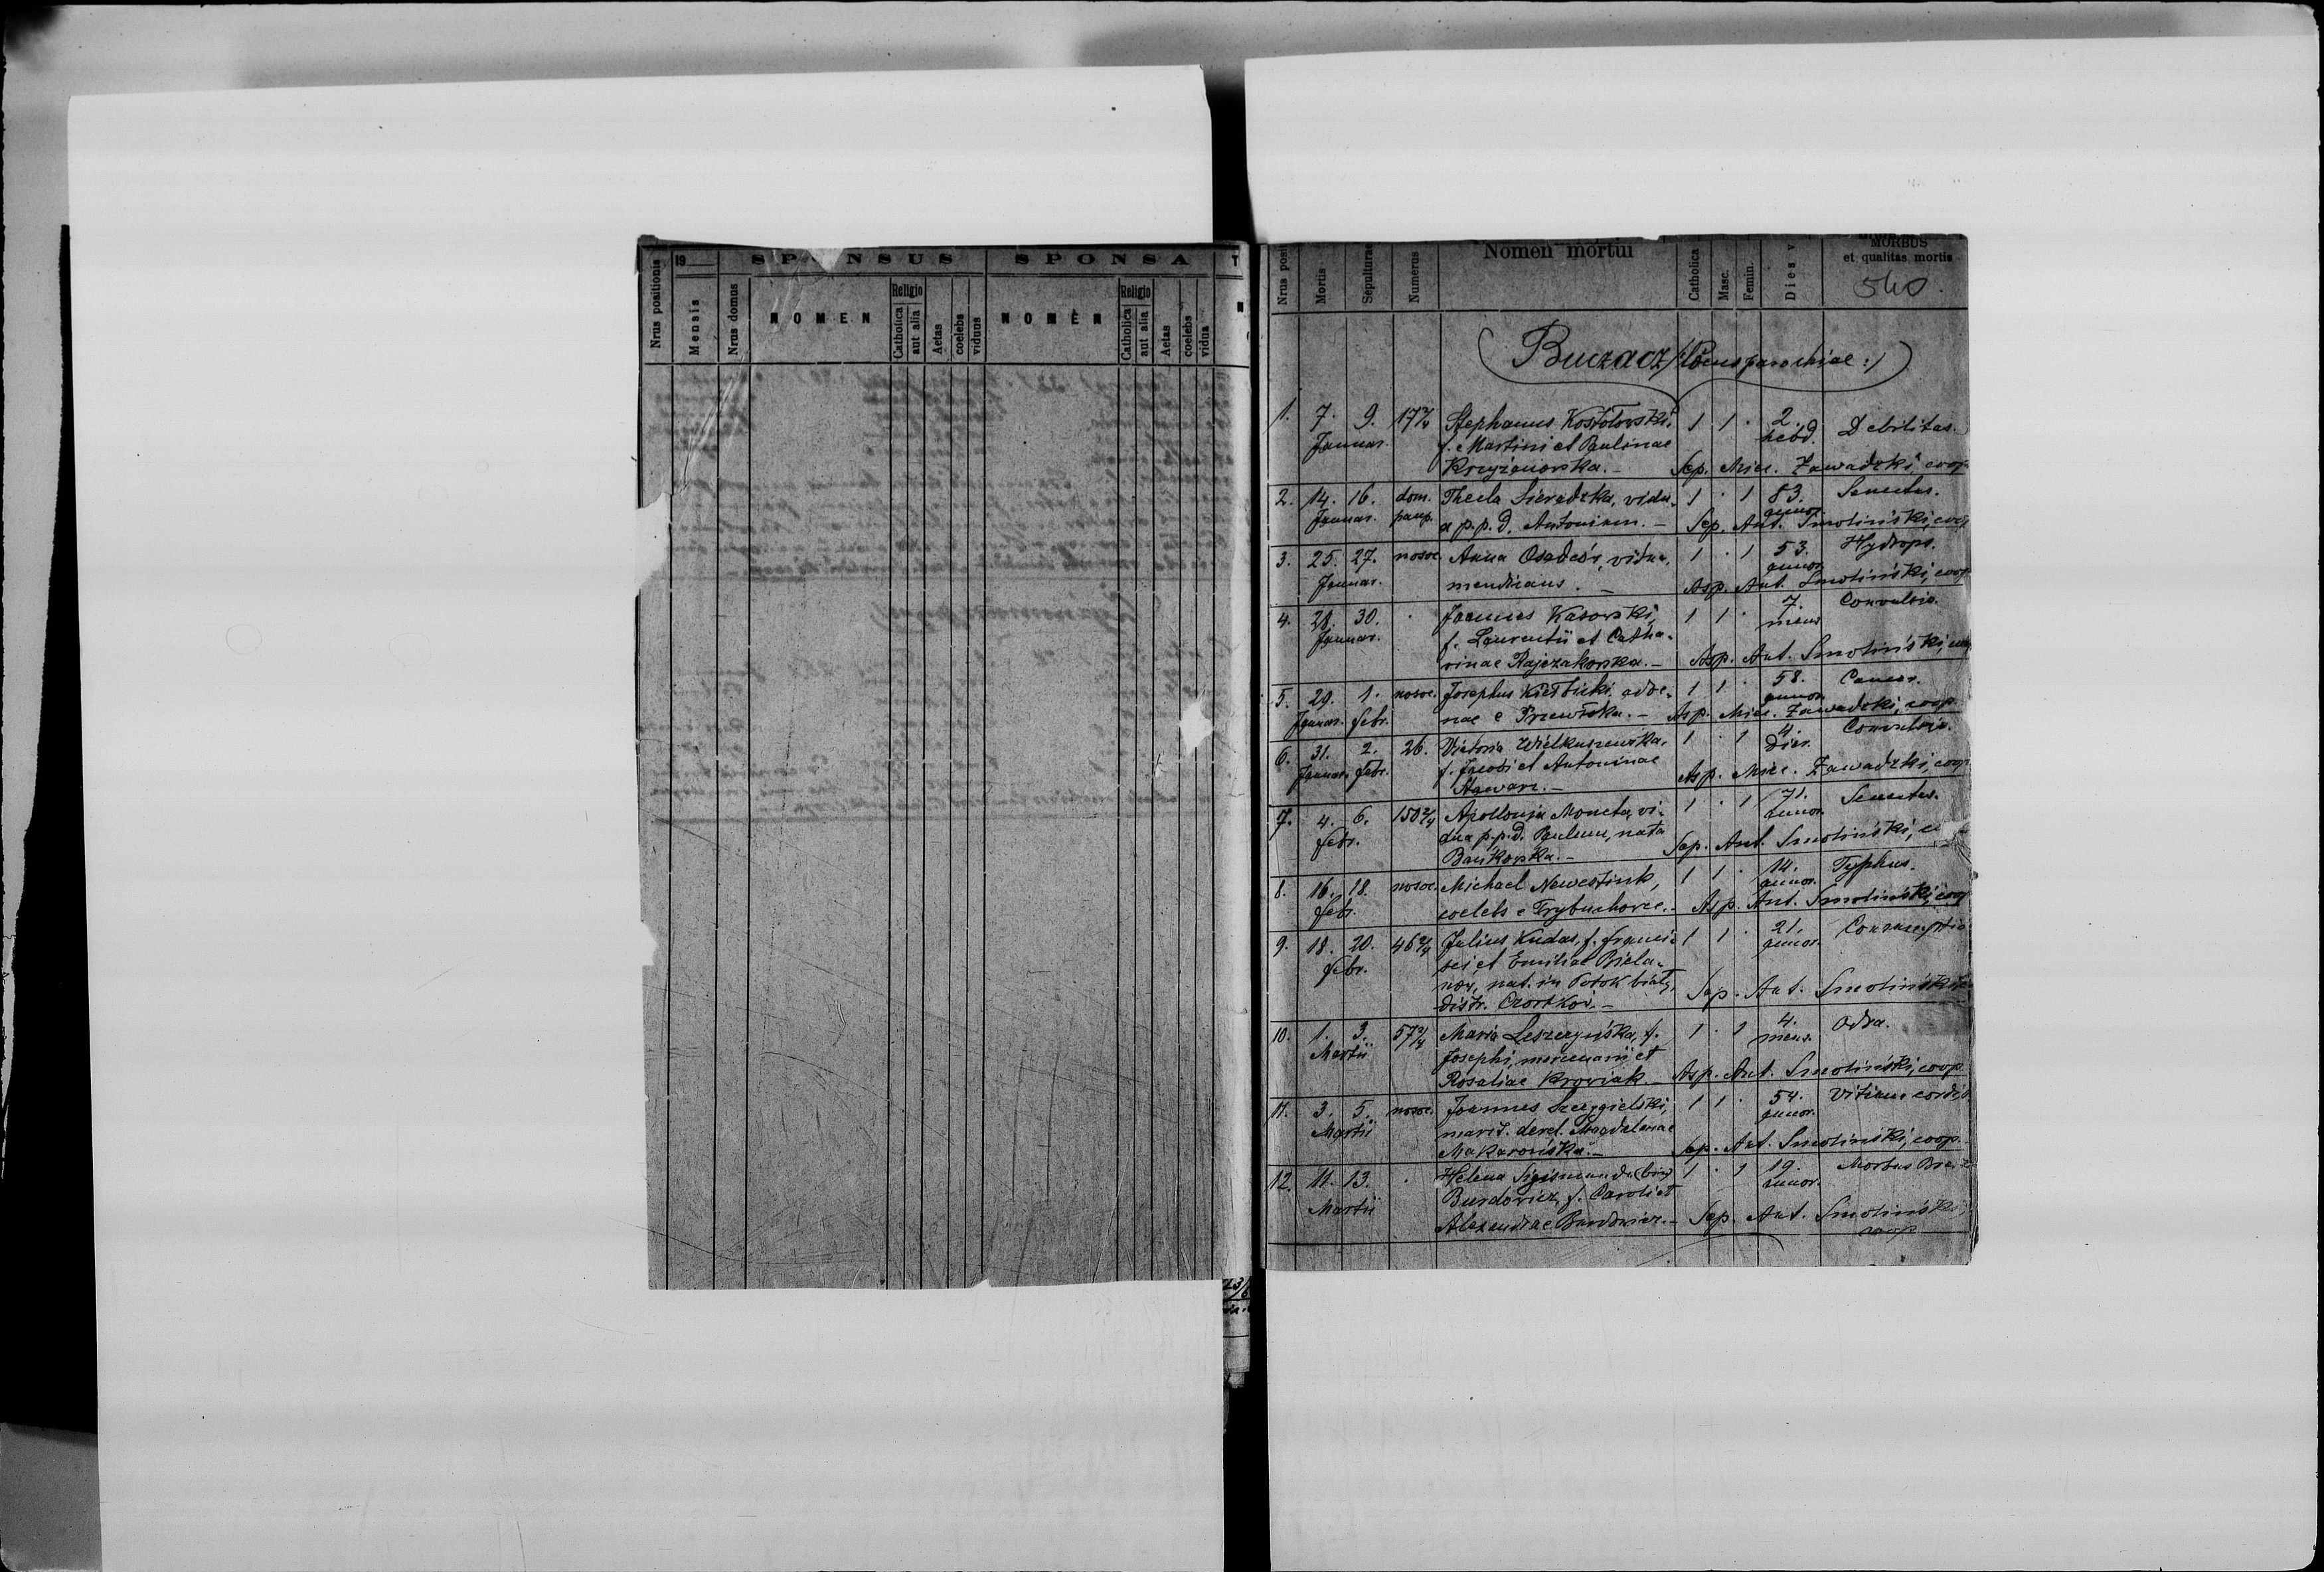 Nrus positionis
19
Mensis
Nrus domus
SPONSUS
NOMEN
Religio
Catholica
aut alia
Aetas
coelebs
viduus
SPONSA
NOMEN
Religio
Catholica
aut alia
Aetas
coelebs
vidua
T
N
Nrus posi
Mortis
Sepulturae
Numerus
Nomen mortui
Catholica
Masc.
Femin.
Dies v
MORBUS
et qualitas mortis
540.
Buczacz /:locus parochiae:/
1. 7. 9. Stephanus Kostołowski, 1 1 · 2. Debilitas.
Januar. f. Martini et Paulinae hebd.
Krzyżanowska. – Sep. Mice. Zawadzki, coop
2. 14. 16. dom. Thecla Sieradzka, vidu- 1 · 1 83. Senectus.
Januar. paup. a p. p. d. Antonium. – annor. Sep. Ant. Smoliński, coop
3. 25. 27. nosoc. Anna vidua, 1 · 1 53. Hydrops.
Januar. mendicans. – annor. Asp. Ant. Smoliński, coop
4. 28. 30. · Joannes Kasowski, 1 1 · 7. Convulsio.
Januar. f. Laurentii et Catha- mens.
rinae Rajczakowska. – Asp. Ant. Smoliński,
5. 29. 1. nosoc. Josephus adve- 1 1 · 58. Cancer.
Januar. Febr. nae e Przewłoka. – annor. Asp. Mice. Zawadzki, coop
6. 31. 2. 26. Victoria Wielkuszewska, 1 · 1 4. Convulsio.
Januar. Febr. f. Jacobi et Antoninae dier.
– Asp. Mice. Zawadzki, coop
7. 4. 6. Apollonia Moneta, vi- 1 · 1 71. Senectus.
Febr. dua p. p. d. Paulum, nata annor.
Bańkowska. – Sep. Ant. Smoliński,
8. 16. 18. nosoc. Michael 1 1 · 14. Typhus.
Febr. coelebs e Trybuchowce. – annor. Asp. Ant. Smoliński, coop
9. 18. 20. Julius Kudas, f. Franci- 1 1 · 21. Consumptio
Febr. sci et Emiliae Biela- annor.
now, nat. in Potok biały,
distr. Czortkow. – Sep. Ant. Smoliński
10. 1. 3. Maria Leszczyńska, f. 1 · 1 4. Odra.
Martii Josephi, mercenarii et mens.
Rosaliae Krowiak. – Asp. Ant. Smoliński, coop
11. 3. 5. nosoc. Joannes Szczygielski, 1 1 · 54. Vitium cordis
Martii marit. derel. Magdalenae annor.
Makarońska. – Sep. Ant. Smoliński, coop.
12. 11. 13. · Helena Sigismunda (bin) 1 · 1 19. Morbus
Martii Burdowicz, f. Caroli et annor.
Alexandrae Burdowicz. – Sep. Ant. Smoliński,
coop